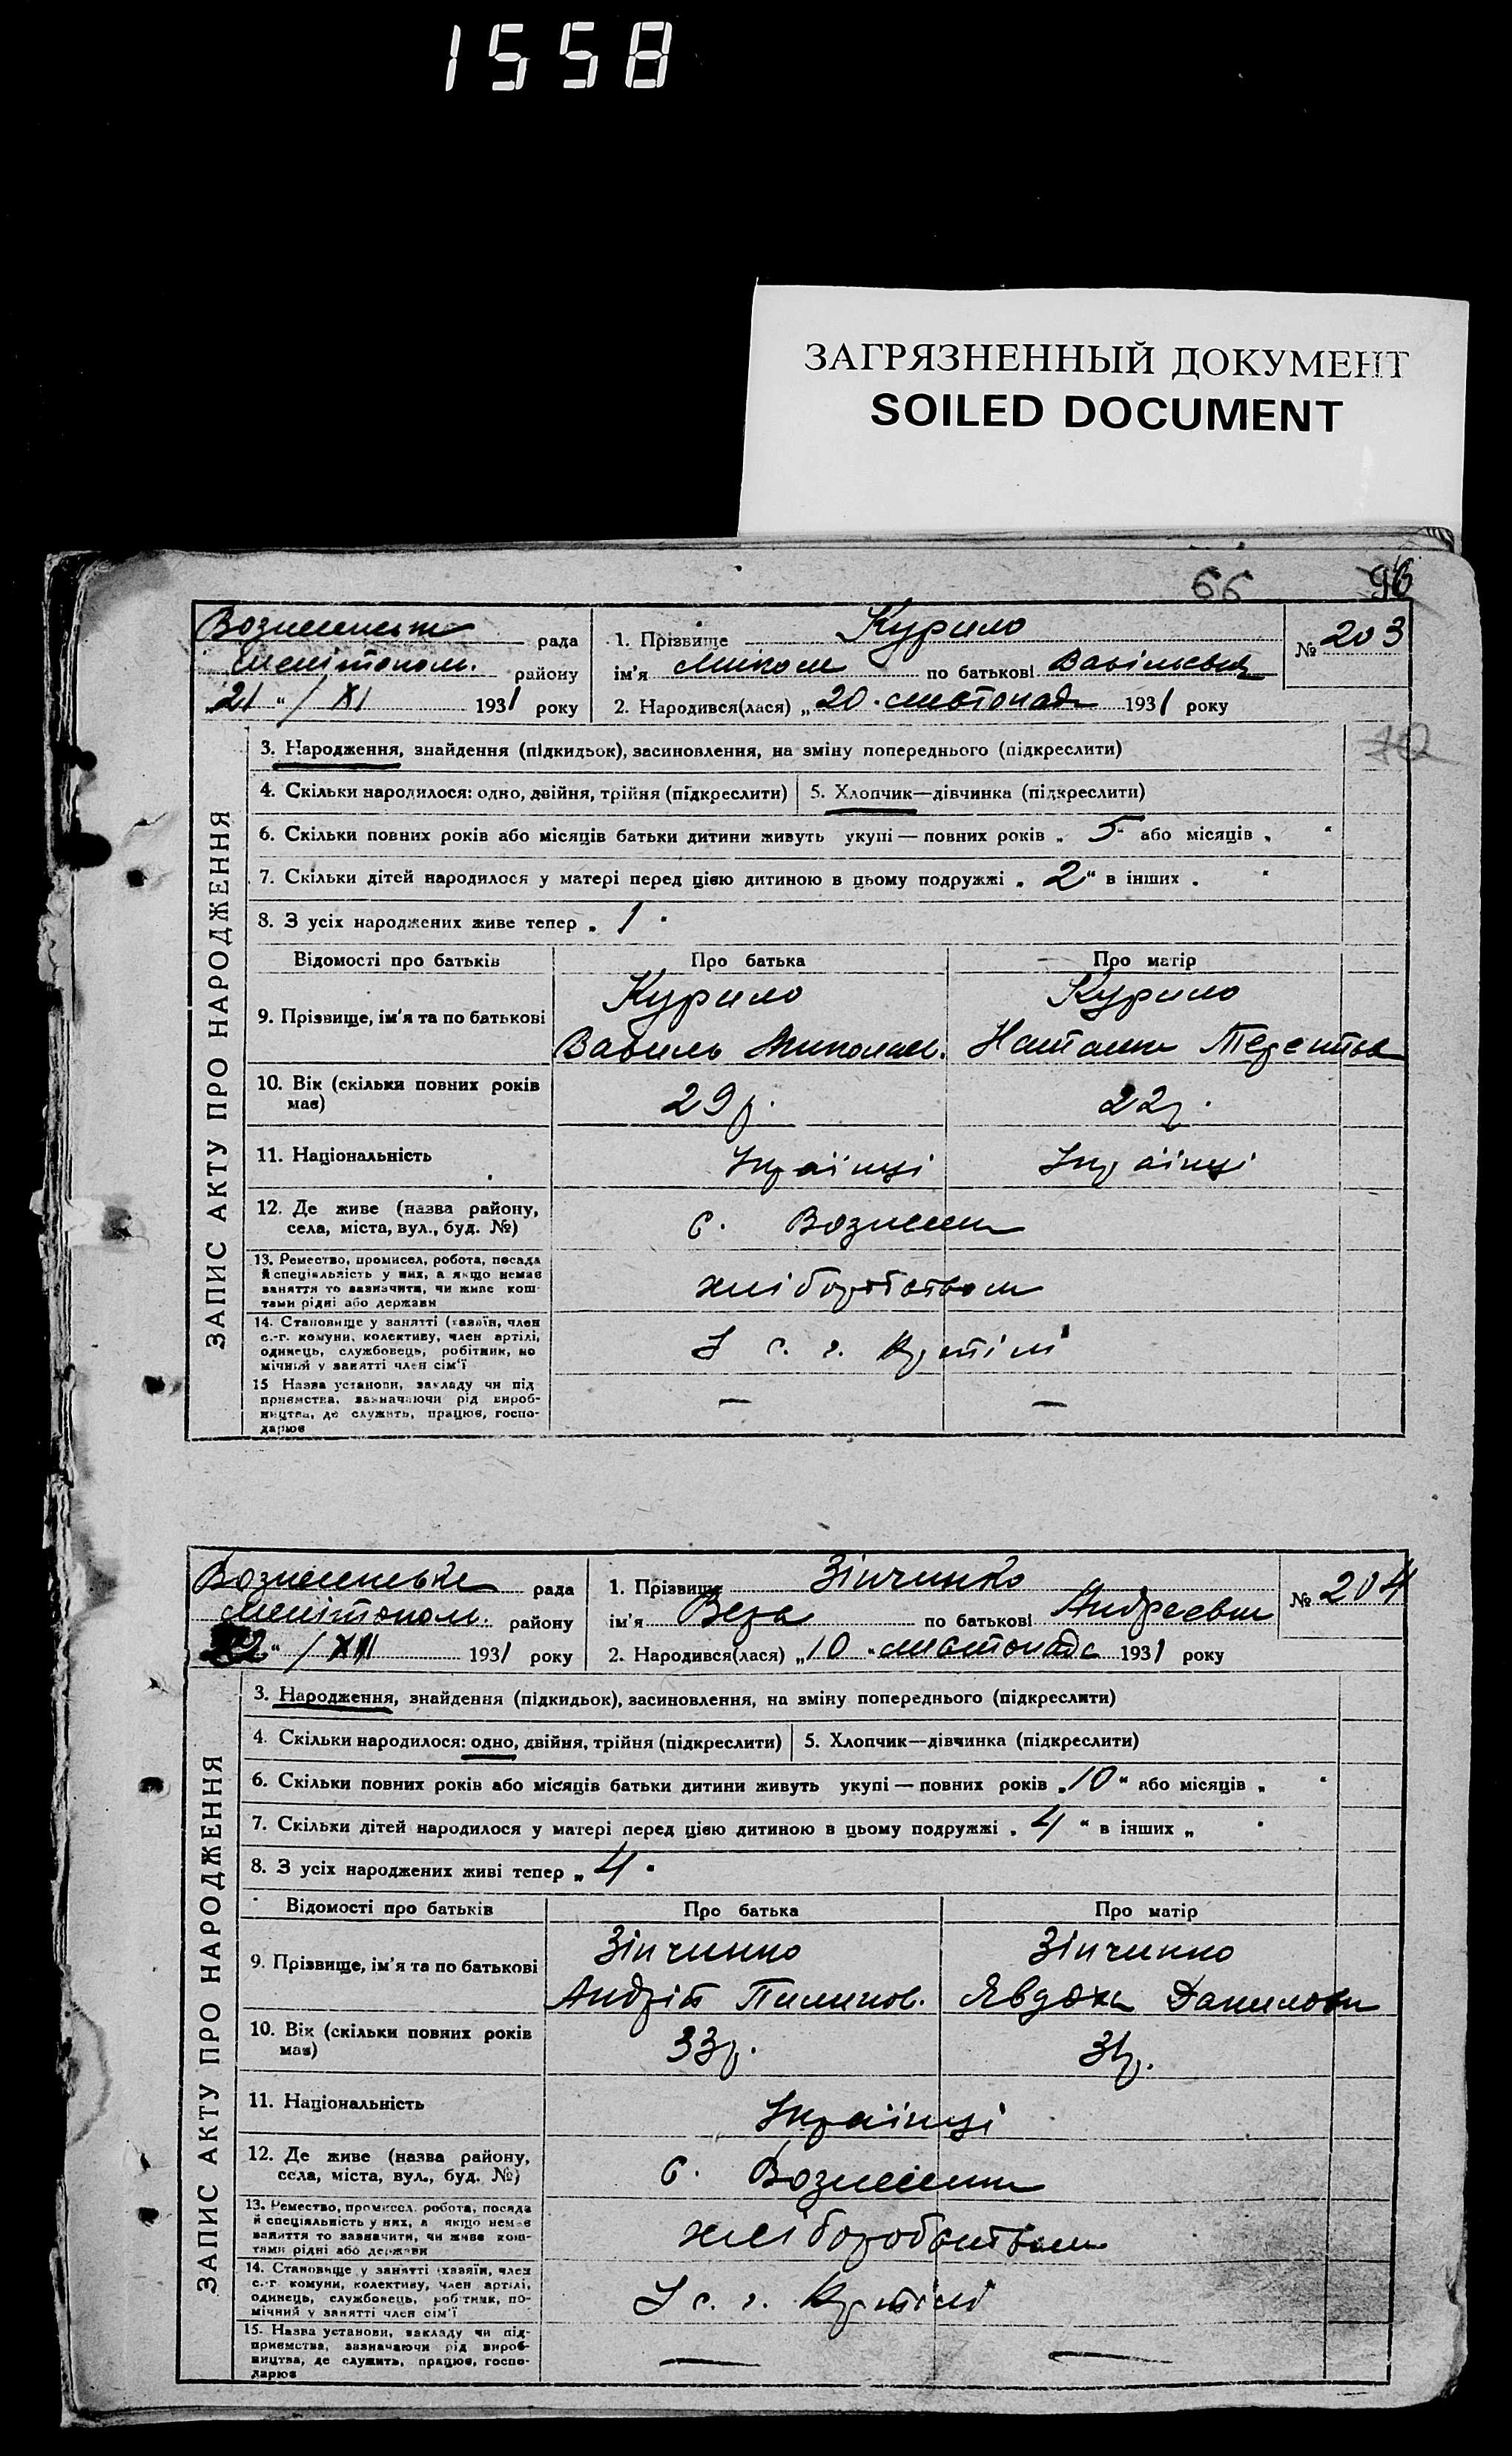 1558
ЗАГРЯЗНЕННЫЙ ДОКУМЕНТ
SOILED DOCUMENT
66 96
рада
району
21 " / XI 1931 року
1. Прізвище Курило
ім'я Микола по батькові
2. Народився(лася) „ 20 " листопада 1931 року
№ 203
ЗАПИС АКТУ ПРО НАРОДЖЕННЯ
3. Народження, знайдення (підкидьок), засиновлення, на зміну попереднього (підкреслити)
4. Скільки народилося: одно, двійня, трійня (підкреслити) 5. Хлопчик—дівчинка (підкреслити)
6. Скільки повних років або місяців батьки дитини живуть укупі — повних років „ 5 " або місяців „ "
7. Скільки дітей народилося у матері перед цією дитиною в цьому подружжі „ 2 " в інших „ "
8. З усіх народжених живе тепер „ 1 "
Відомості про батьків Про батька Про матір
9. Прізвище, ім'я та по батькові
Курило Курило
Василь Миколаєв.
10. Вік (скільки повних років
має)
29 р. 22 р.
11. Національність
Українці Українці
12. Де живе (назва району,
села, міста, вул., буд. №)
с.
13. Ремество, промисел, робота, посада
й спеціяльність у них, а якщо немає
заняття то зазначити, чи живе кош-
тами рідні або держави
хліборобством
14. Становище у занятті (хазяїн, член
с.-г. комуни, колективу, член артілі,
одинець, службовець, робітник, по
мічний у занятті член сім'ї
У с. г. артілі
15 Назва установи, закладу чи під
приємства, зазначаючи рід вироб-
ництва, де служить, працює, госпо-
дарює
— —
рада
району
22 " / XII 1931 року
1. Прізвище Зінчинко
ім'я Вера по батькові Андреевна
2. Народився(лася) „ 10 " листопада 1931 року
№ 204
ЗАПИС АКТУ ПРО НАРОДЖЕННЯ
3. Народження, знайдення (підкидьок), засиновлення, на зміну попереднього (підкреслити)
4. Скільки народилося: одно, двійня, трійня (підкреслити) 5. Хлопчик—дівчинка (підкреслити)
6. Скільки повних років або місяців батьки дитини живуть укупі — повних років „ 10 " або місяців „ "
7. Скільки дітей народилося у матері перед цією дитиною в цьому подружжі „ 4 " в інших „ "
8. З усіх народжених живі тепер „ 4 "
Відомості про батьків Про батька Про матір
9. Прізвище, ім'я та по батькові
Зінчинко Зінчинко
Андрій Пилипов. Явдоха Данилова
10. Вік (скільки повних років
має)
33 р. 31 р.
11. Національність
Українці
12. Де живе (назва району,
села, міста, вул., буд. №)
с.
13. Ремество, промисел, робота, посада
й спеціяльність у них, а якщо немає
заняття то зазначити, чи живе кош-
тами рідні або держави
хліборобством
14. Становище у занятті (хазяїн, член
с.-г. комуни, колективу, член артілі,
одинець, службовець, робітник, по-
мічний у занятті член сім'ї
У с. г. артілі
15. Назва установи, закладу чи під-
приємства, зазначаючи рід вироб-
ництва, де служить, працює, госпо-
дарює
— —